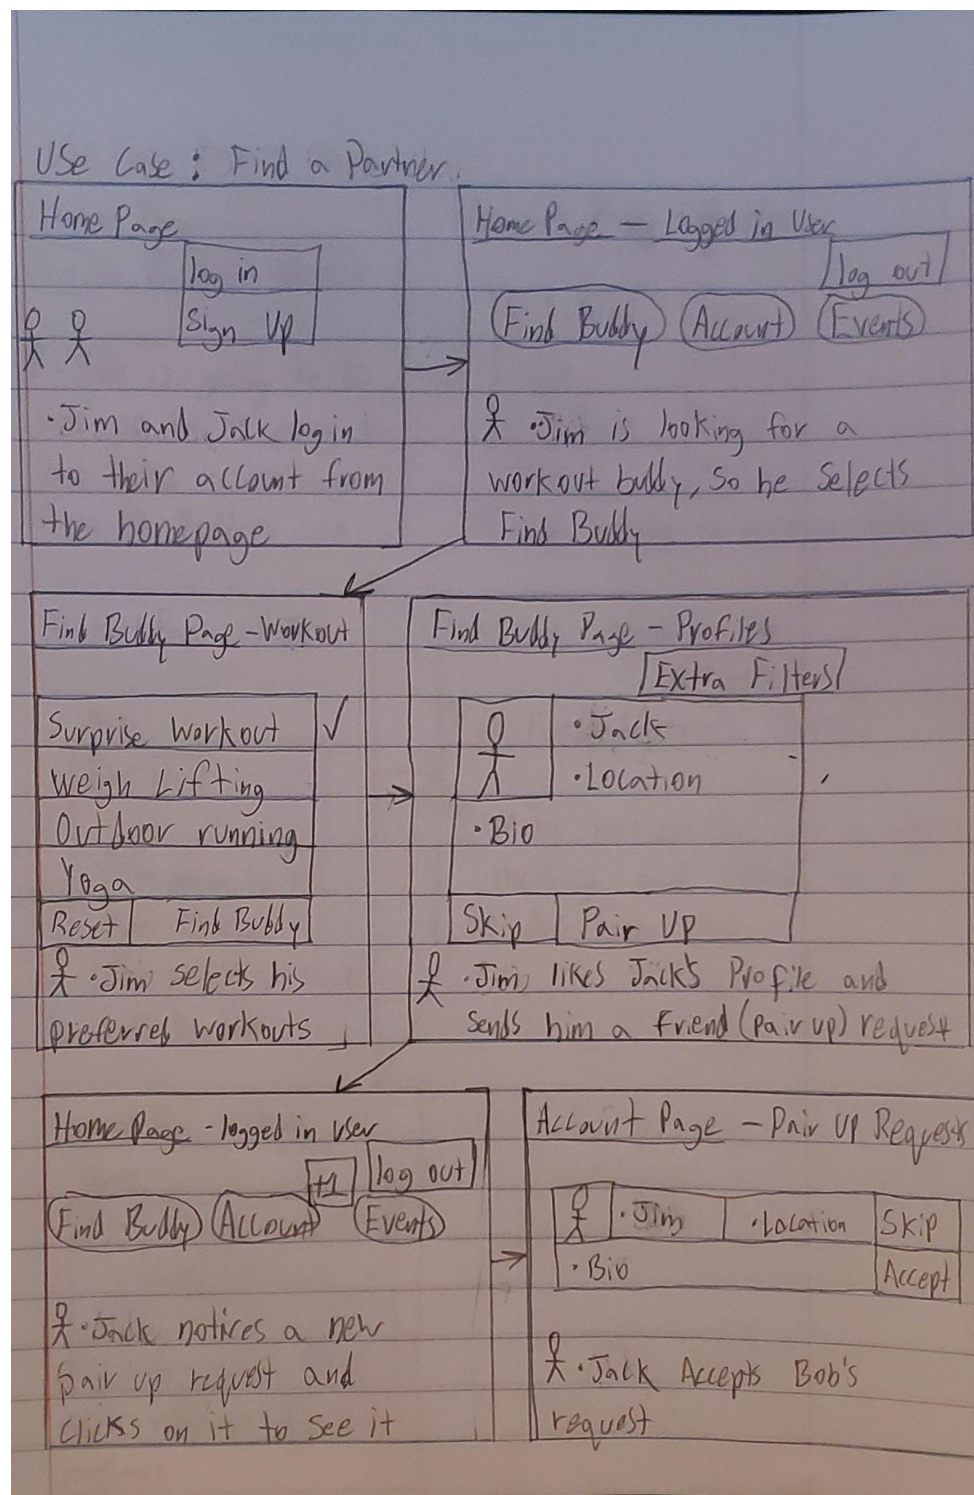 Use Case: Find a Partner.
Home Page
log in
Sign Up
• Jim and Jack log in
to their account from
the homepage
Home Page - Logged in User
log out
Find Buddy Account Events
• Jim is looking for a
workout buddy, So he Selects
Find Buddy
Find Buddy Page - Workout
Surprise Workout ✓
Weigh Lifting
Outdoor running
Yoga
Reset Find Buddy
• Jim selects his
preferred workouts
Find Buddy Page - Profiles
Extra Filters
• Jack
• Location
• Bio
Skip Pair Up
• Jim likes Jack's Profile and
sends him a friend (pair up) request
Home Page - logged in user
+1 log out
Find Buddy Account Events
• Jack notices a new
pair up request and
clicks on it to See it
Account Page - Pair Up Requests
• Jim • Location Skip
• Bio Accept
• Jack Accepts Bob's
request